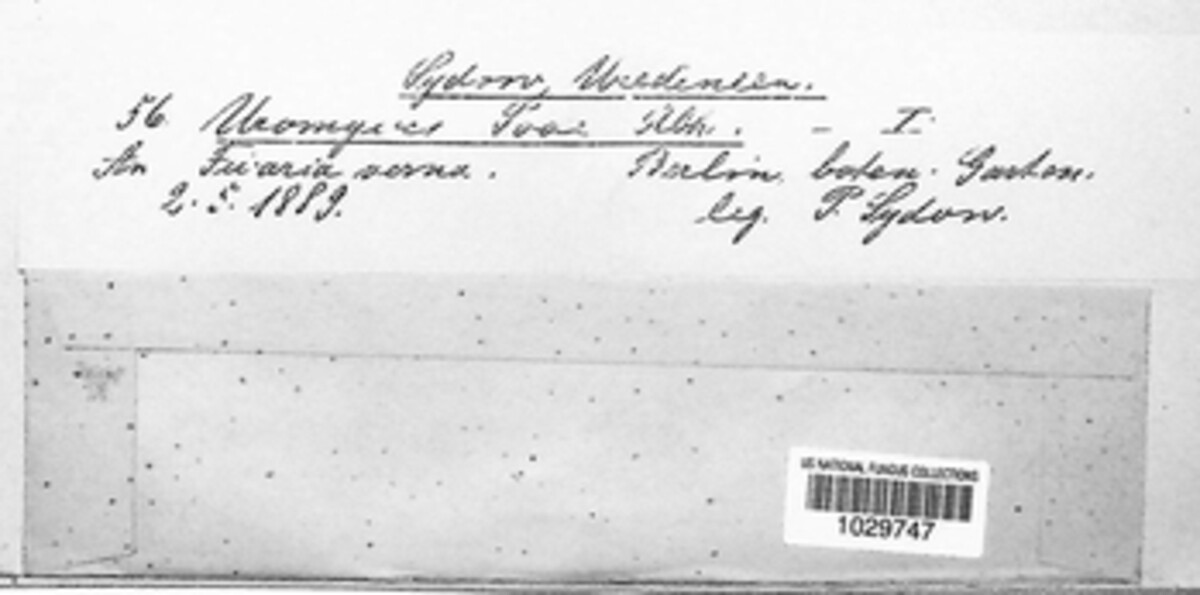 Sydow, Uredineen.
56. Uromyces Poae Rbh. - I.
An Ficaria verna. Berlin, botan. Garten.
2. 5. 1889. leg. P. Sydow.
US NATIONAL FUNGUS COLLECTIONS
1029747